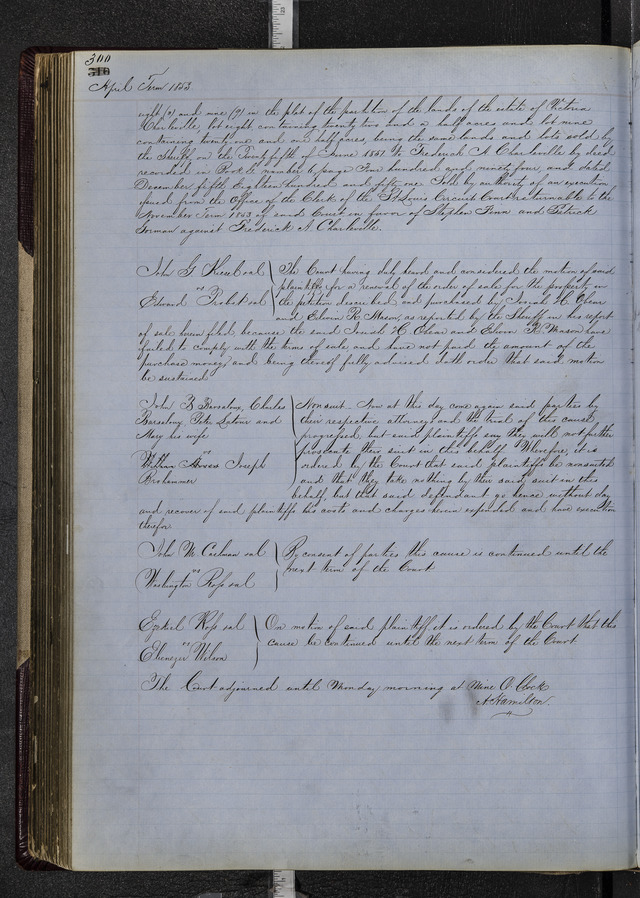 300
April Term 1853.
eight (8) and nine (9) in the plat of the partition of the lands of the estate of Victoria
Charleville, lot eight containing twenty two and a half acres and lot nine
containing twenty one and one half acres, being the same lands and lots sold by
the Sheriff on the Twenty fifth of June 1851 to Frederick A Charleville by deed
recorded in Book number 6 page Four hundred and ninety four, and dated
December fifth Eighteen hundred and fifty one. Sold by authority of an execution
issued from the Office of the Clerk of the St Louis Circuit Court returnable to the
November Term 1853 of said Court in favor of Stephen and Patrick
Gorman against Frederick A Charleville.
John G et al } The Court having duly heard and considered the motion of said
vs plaintiffs for a renewal of the order of sale for the property in
Edward Probst et al the petition described and purchased by Josiah H Obear
and Edwin R Mason, as reported by the Sheriff in his report
of sale herein filed, because the said Josiah H Obear and Edwin R Mason have
failed to comply with the terms of sale and have not paid the amount of the
purchase money, and being thereof fully advised doth order that said motion
be sustained
John B Barsaloux, Charles } Nonsuit. Now at this day come again said parties by
Barsaloux, Peter and their respective attorneys and the trial of this cause
Mary his wife progressed, but said plaintiffs say they will not further
vs prosecute their suit in this behalf. Wherefore, it is
William Joseph ordered by the Court that said plaintiffs be nonsuited
Brohammer and that they take nothing by their said suit in this
behalf, but that said defendant go hence without day
and recover of said plaintiffs his costs and charges herein expended and have execution
therefor
John M et al } By consent of parties this cause is continued until the
vs next term of the Court
Washington Ross et al
Ezekiel Ross et al } On motion of said plaintiff it is ordered by the Court that this
vs cause be continued until the next term of the Court
Ebenezer Wilson
The Court adjourned until Monday morning at Nine O Clock
A Hamilton.